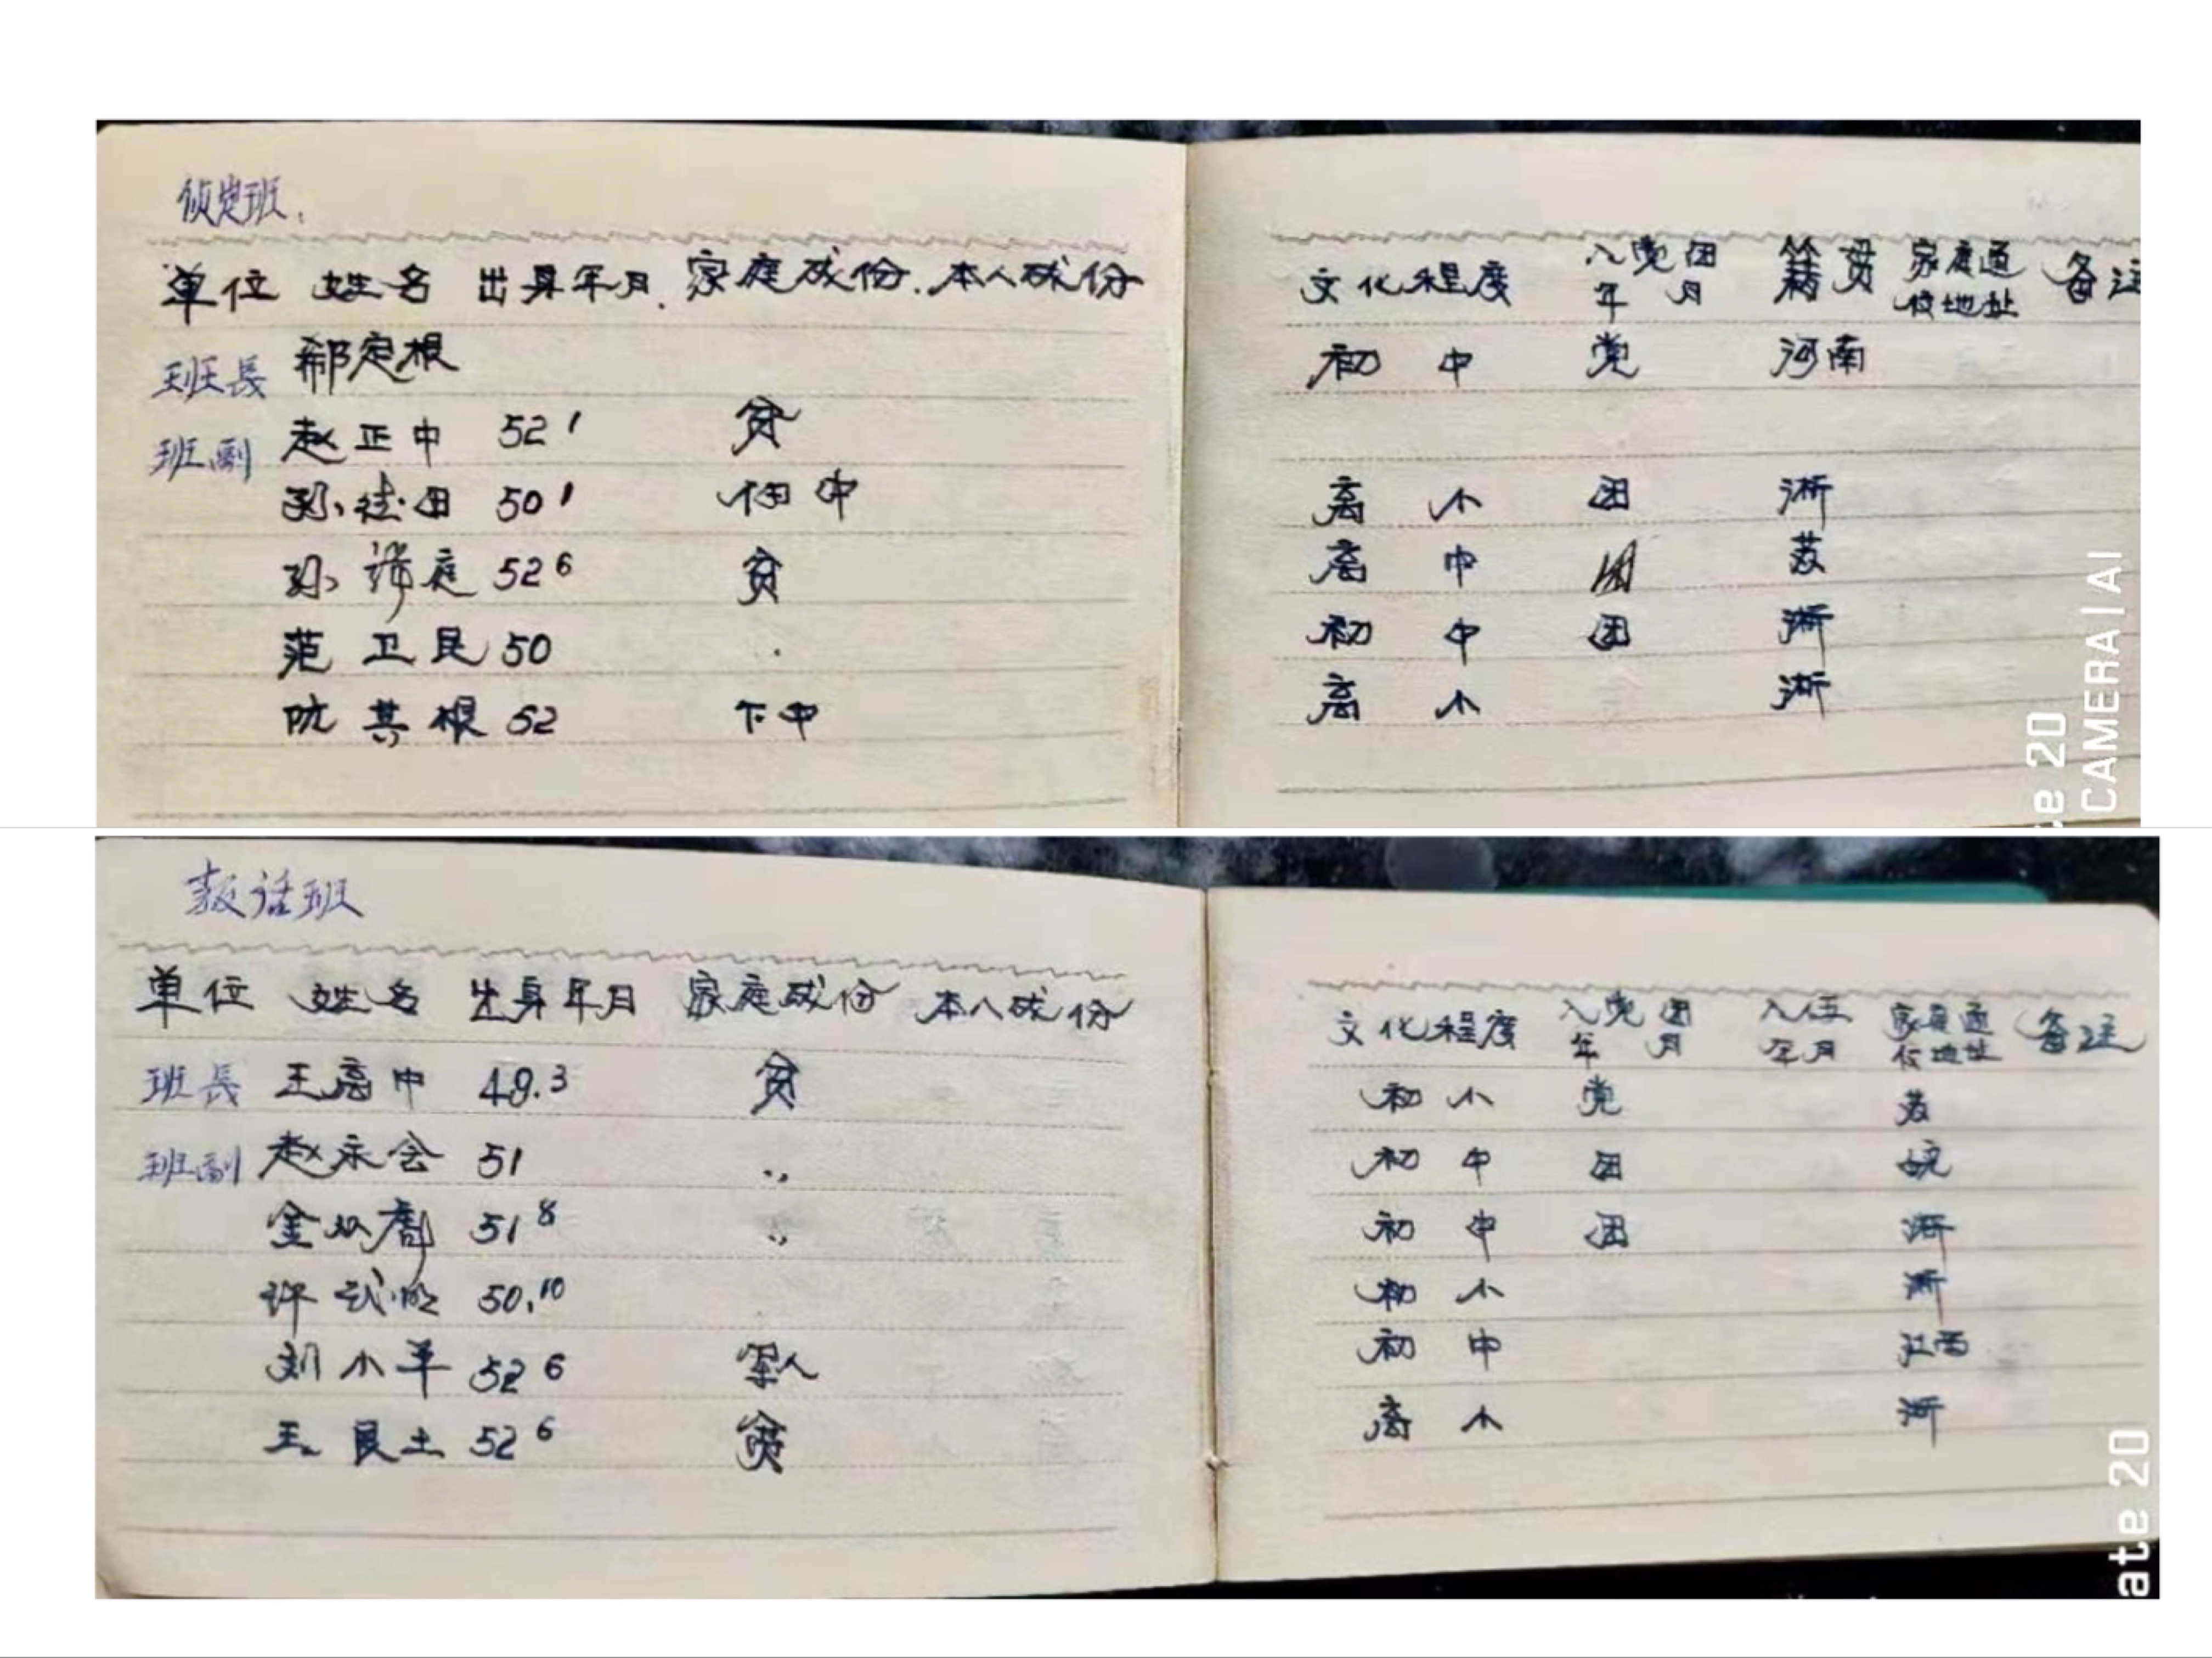 侦察班.
单位 姓名 出身年月. 家庭成份. 本人成份 文化程度 入党团年月 籍贯 家庭通信地址 备注
班長 郗定根 初中 党 河南
班副 赵正中 52 1 贫
孙 田 50 1 中 高小 团 浙
孙 庭 52 6 贫 高中 团 苏
范卫民 50 . 初中 团 浙
阮其根 52 下中 高小 浙
话班
单位 姓名 出身年月 家庭成份 本人成份 文化程度 入党团年月 入伍年月 家庭通信地址 备注
班長 王高中 49.3 贫 初小 党 苏
班副 赵永会 51 〃 初中 团 皖
金 51 8 〃 初中 团 浙
许 50.10 初小 浙
刘小平 52 6 军人 初中 江西
王良土 52 6 贫 高小 浙
te 20
CAMERA | AI
ate 20